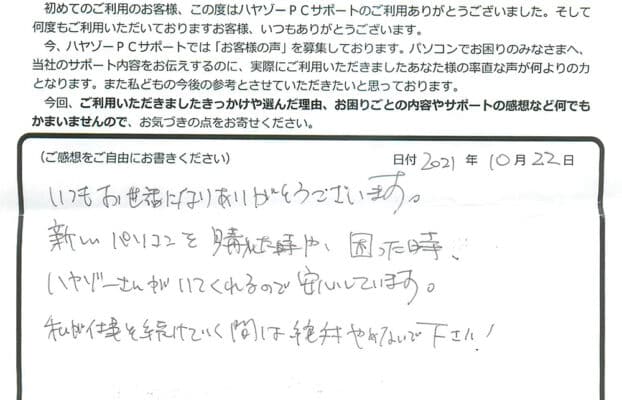 初めてのご利用のお客様、この度はハヤゾーPCサポートのご利用ありがとうございました。そして
何度もご利用いただいておりますお客様、いつもありがとうございます。
今、ハヤゾーPCサポートでは「お客様の声」を募集しております。パソコンでお困りのみなさまへ、
当社のサポート内容をお伝えするのに、実際にご利用いただきましたあなた様の率直な声が何よりの力
となります。また私どもの今後の参考とさせていただきたいと思っております。
今回、ご利用いただきましたきっかけや選んだ理由、お困りごとの内容やサポートの感想など何でも
かまいませんので、お気づきの点をお寄せください。
(ご感想をご自由にお書きください) 日付 2021 年 10 月 22 日
いつもお世話になりありがとうございます。
新しいパソコンを購入した時や、困った時、
ハヤゾーさんがいてくれるので安心しています。
私が仕事を続けていく間は絶対やめないで下さい!